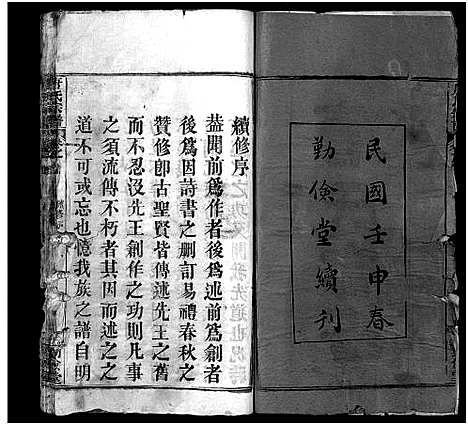 民國壬申春
勤儉堂續刊
續修序
蓋聞前爲作者後爲述前爲創者
後爲因詩書之刪訂易禮春秋之
贊修卽古聖賢皆傳述先王之舊
而不忍沒先王創作之功則凡事
之須流傳不朽者其因而述之之
道不可或忘也憶我族之譜自明